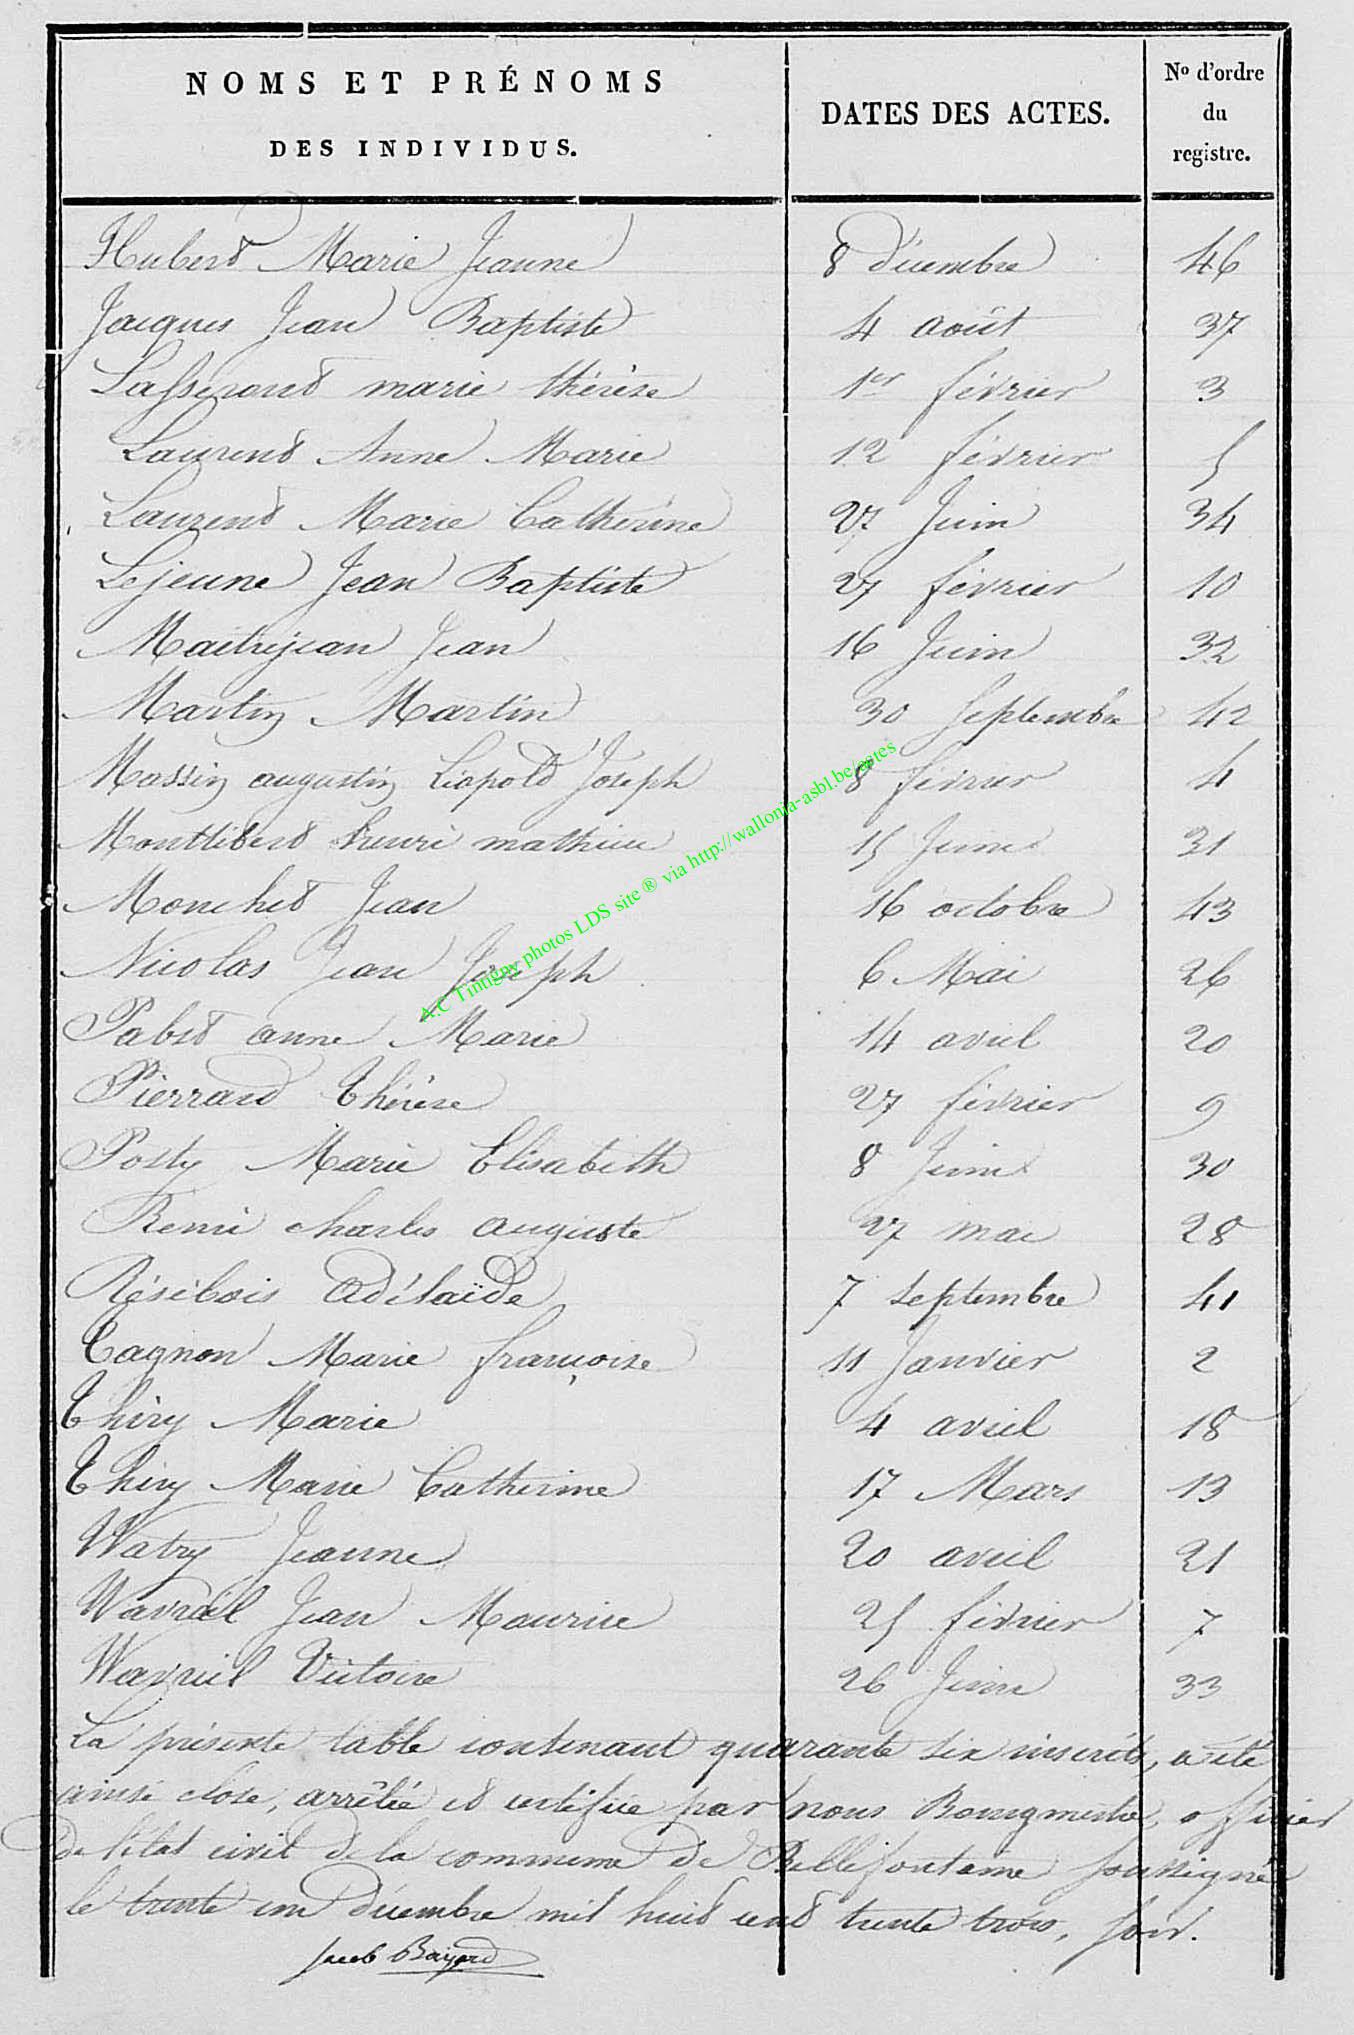 NOMS ET PRÉNOMS DES INDIVIDUS. DATES DES ACTES. No d'ordre du registre.
Hubert Marie Jeanne 8 décembre 46
Jacques Jean Baptiste 4 août 37
Lasserond marie thérèse 1er février 3
Laurent Anne Marie 12 février 5
Laurent Marie Catherine 27 Juin 34
Lejeune Jean Baptiste 27 février 10
Maitrejean Jean 16 Juin 32
Martin Martin 30 Septembre 42
Massin augustin Léopold Joseph 8 février 4
Henri mathieu 15 Juin 31
Monchet Jean 16 octobre 43
Nicolas Jean Joseph 6 Mai 26
Pabst anne Marie 14 avril 20
Pierrard Thérèse 27 février 9
Posty Marie Elisabeth 8 Juin 30
Remi charles auguste 27 mai 28
Résibois Adélaïde 7 septembre 41
Tagnon Marie françoise 11 Janvier 2
Thiry Marie 4 avril 18
Thiry Marie Catherine 17 Mars 13
Watry Jeanne 20 avril 21
Wavreil Jean Maurice 25 février 7
Wavreil Victoire 26 Juin 33
La présente table contenant quarante six inscrits, a été
ainsi close, arrêtée et certifiée par nous Bourgmestre, officier
de l'état civil de la commune de Bellefontaine soussigné
le trente un décembre mil huit cent trente trois, soir.
Jacob Bayard
A.C Tintigny photos LDS site ® via http://wallonia-asbl.be/actes